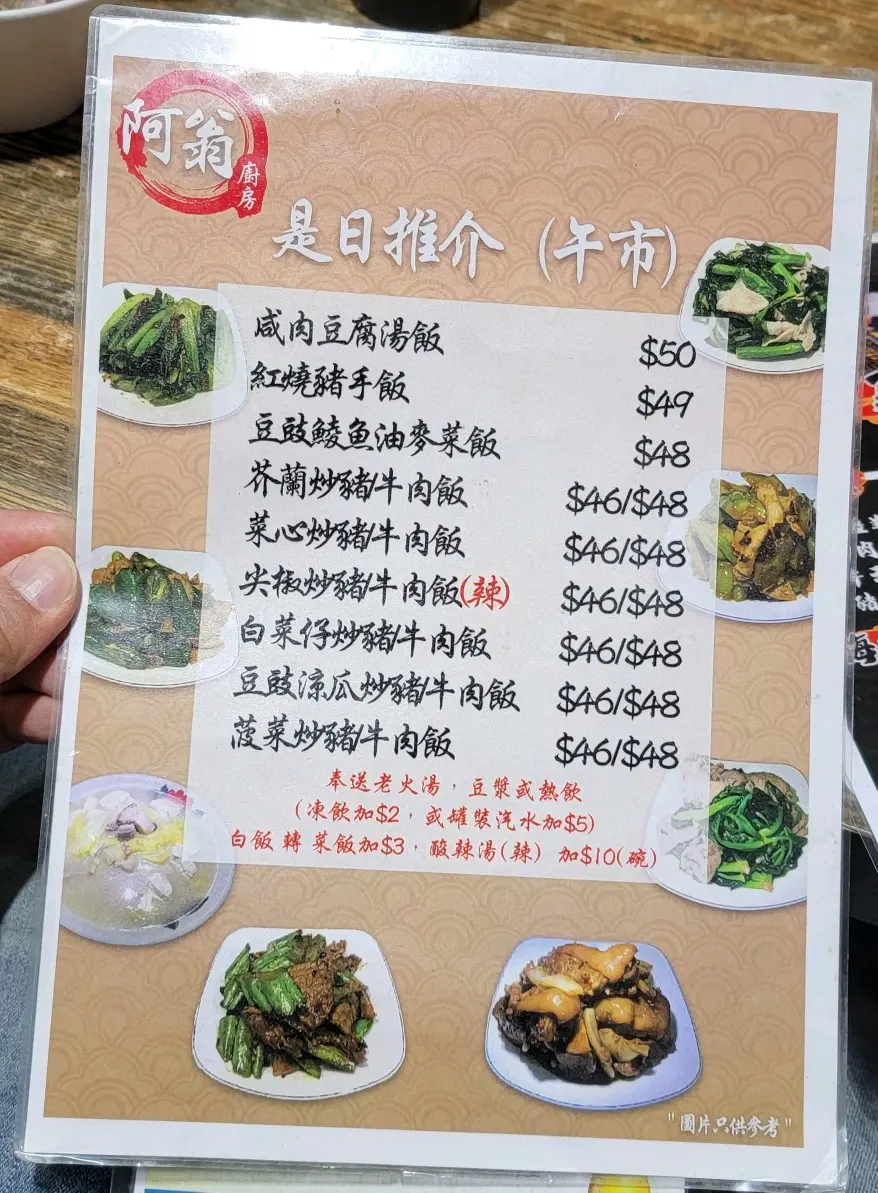 阿翁
廚房
是日推介 (午市)
咸肉豆腐湯飯 $50
紅燒豬手飯 $49
豆豉鯪魚油麥菜飯 $48
芥蘭炒豬/牛肉飯 $46/$48
菜心炒豬/牛肉飯 $46/$48
尖椒炒豬/牛肉飯(辣) $46/$48
白菜仔炒豬/牛肉飯 $46/$48
豆豉涼瓜炒豬/牛肉飯 $46/$48
菠菜炒豬/牛肉飯 $46/$48
奉送老火湯，豆漿或熱飲
(凍飲加$2，或罐裝汽水加$5)
白飯 轉 菜飯加$3，酸辣湯(辣) 加$10(碗)
"圖片只供參考"